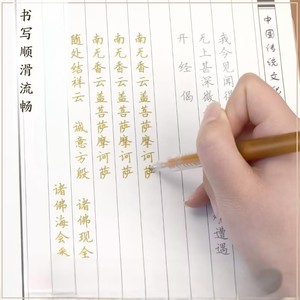 中国传统文
我今见闻得 遭遇
无上甚深微
开经偈
南无香云盖菩萨摩诃萨
南无香云盖菩萨摩诃萨
南无香云盖菩萨摩诃萨
随处结祥云 诚意方殷 诸佛现全
诸佛海会
书写顺滑流畅